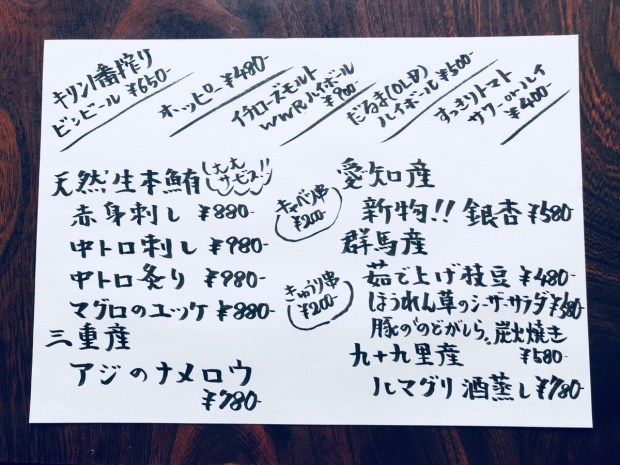 キリン1番搾り
ビンビール ¥650-
ホッピー ¥480-
イチローズモルト
WWRハイボール
¥900
だるま(OLD)
ハイボール ¥500-
すっきりトマト
サワー or ハイ
¥400-
天然生本鮪 大大サービス!!
赤身刺し ¥880-
中トロ刺し ¥980-
中トロ炙り ¥980-
マグロのユッケ ¥880-
三重産
アジのナメロウ
¥780-
キャベツ串
¥200-
きゅうり串
¥200-
愛知産
新物!! 銀杏 ¥580-
群馬産
茹で上げ枝豆 ¥480-
ほうれん草のシーザーサラダ ¥580-
豚の"のどがしら"炭火焼き
¥580-
九十九里産
ハマグリ酒蒸し ¥780-